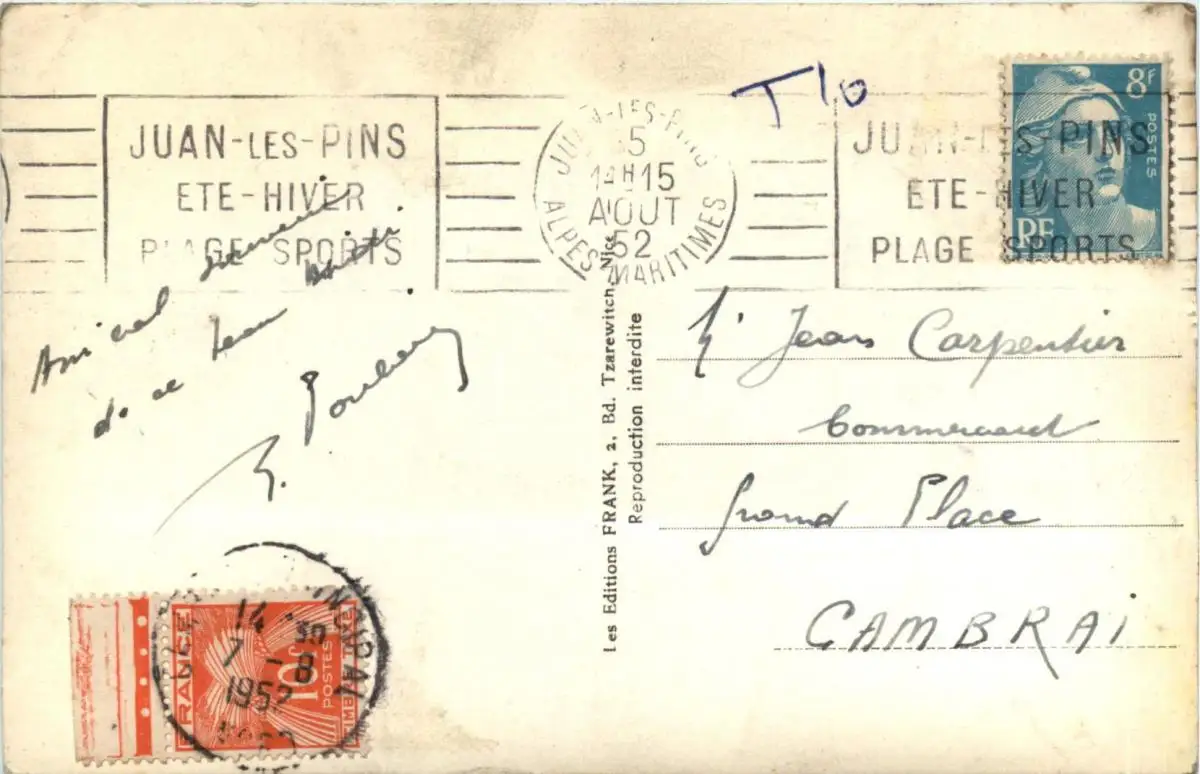 JUAN-LES-PINS
ETE-HIVER
PLAGE SPORTS
JUAN-LES-PINS
5
14H15
AOUT
52
ALPES-MARITIMES
T 10
JUAN-LES-PINS
ETE-HIVER
PLAGE SPORTS
8F
POSTES
RF
Amical souvenir
de ce beau
M. Jean Carpentier
Commerçant
Grand Place
CAMBRAI
Les Editions FRANK, 2, Bd. Tzarewitch, Nice
Reproduction interdite
14 30
7 - 8
1952
NORD
FRANCE
10F
POSTES
TIMBRE TAXE